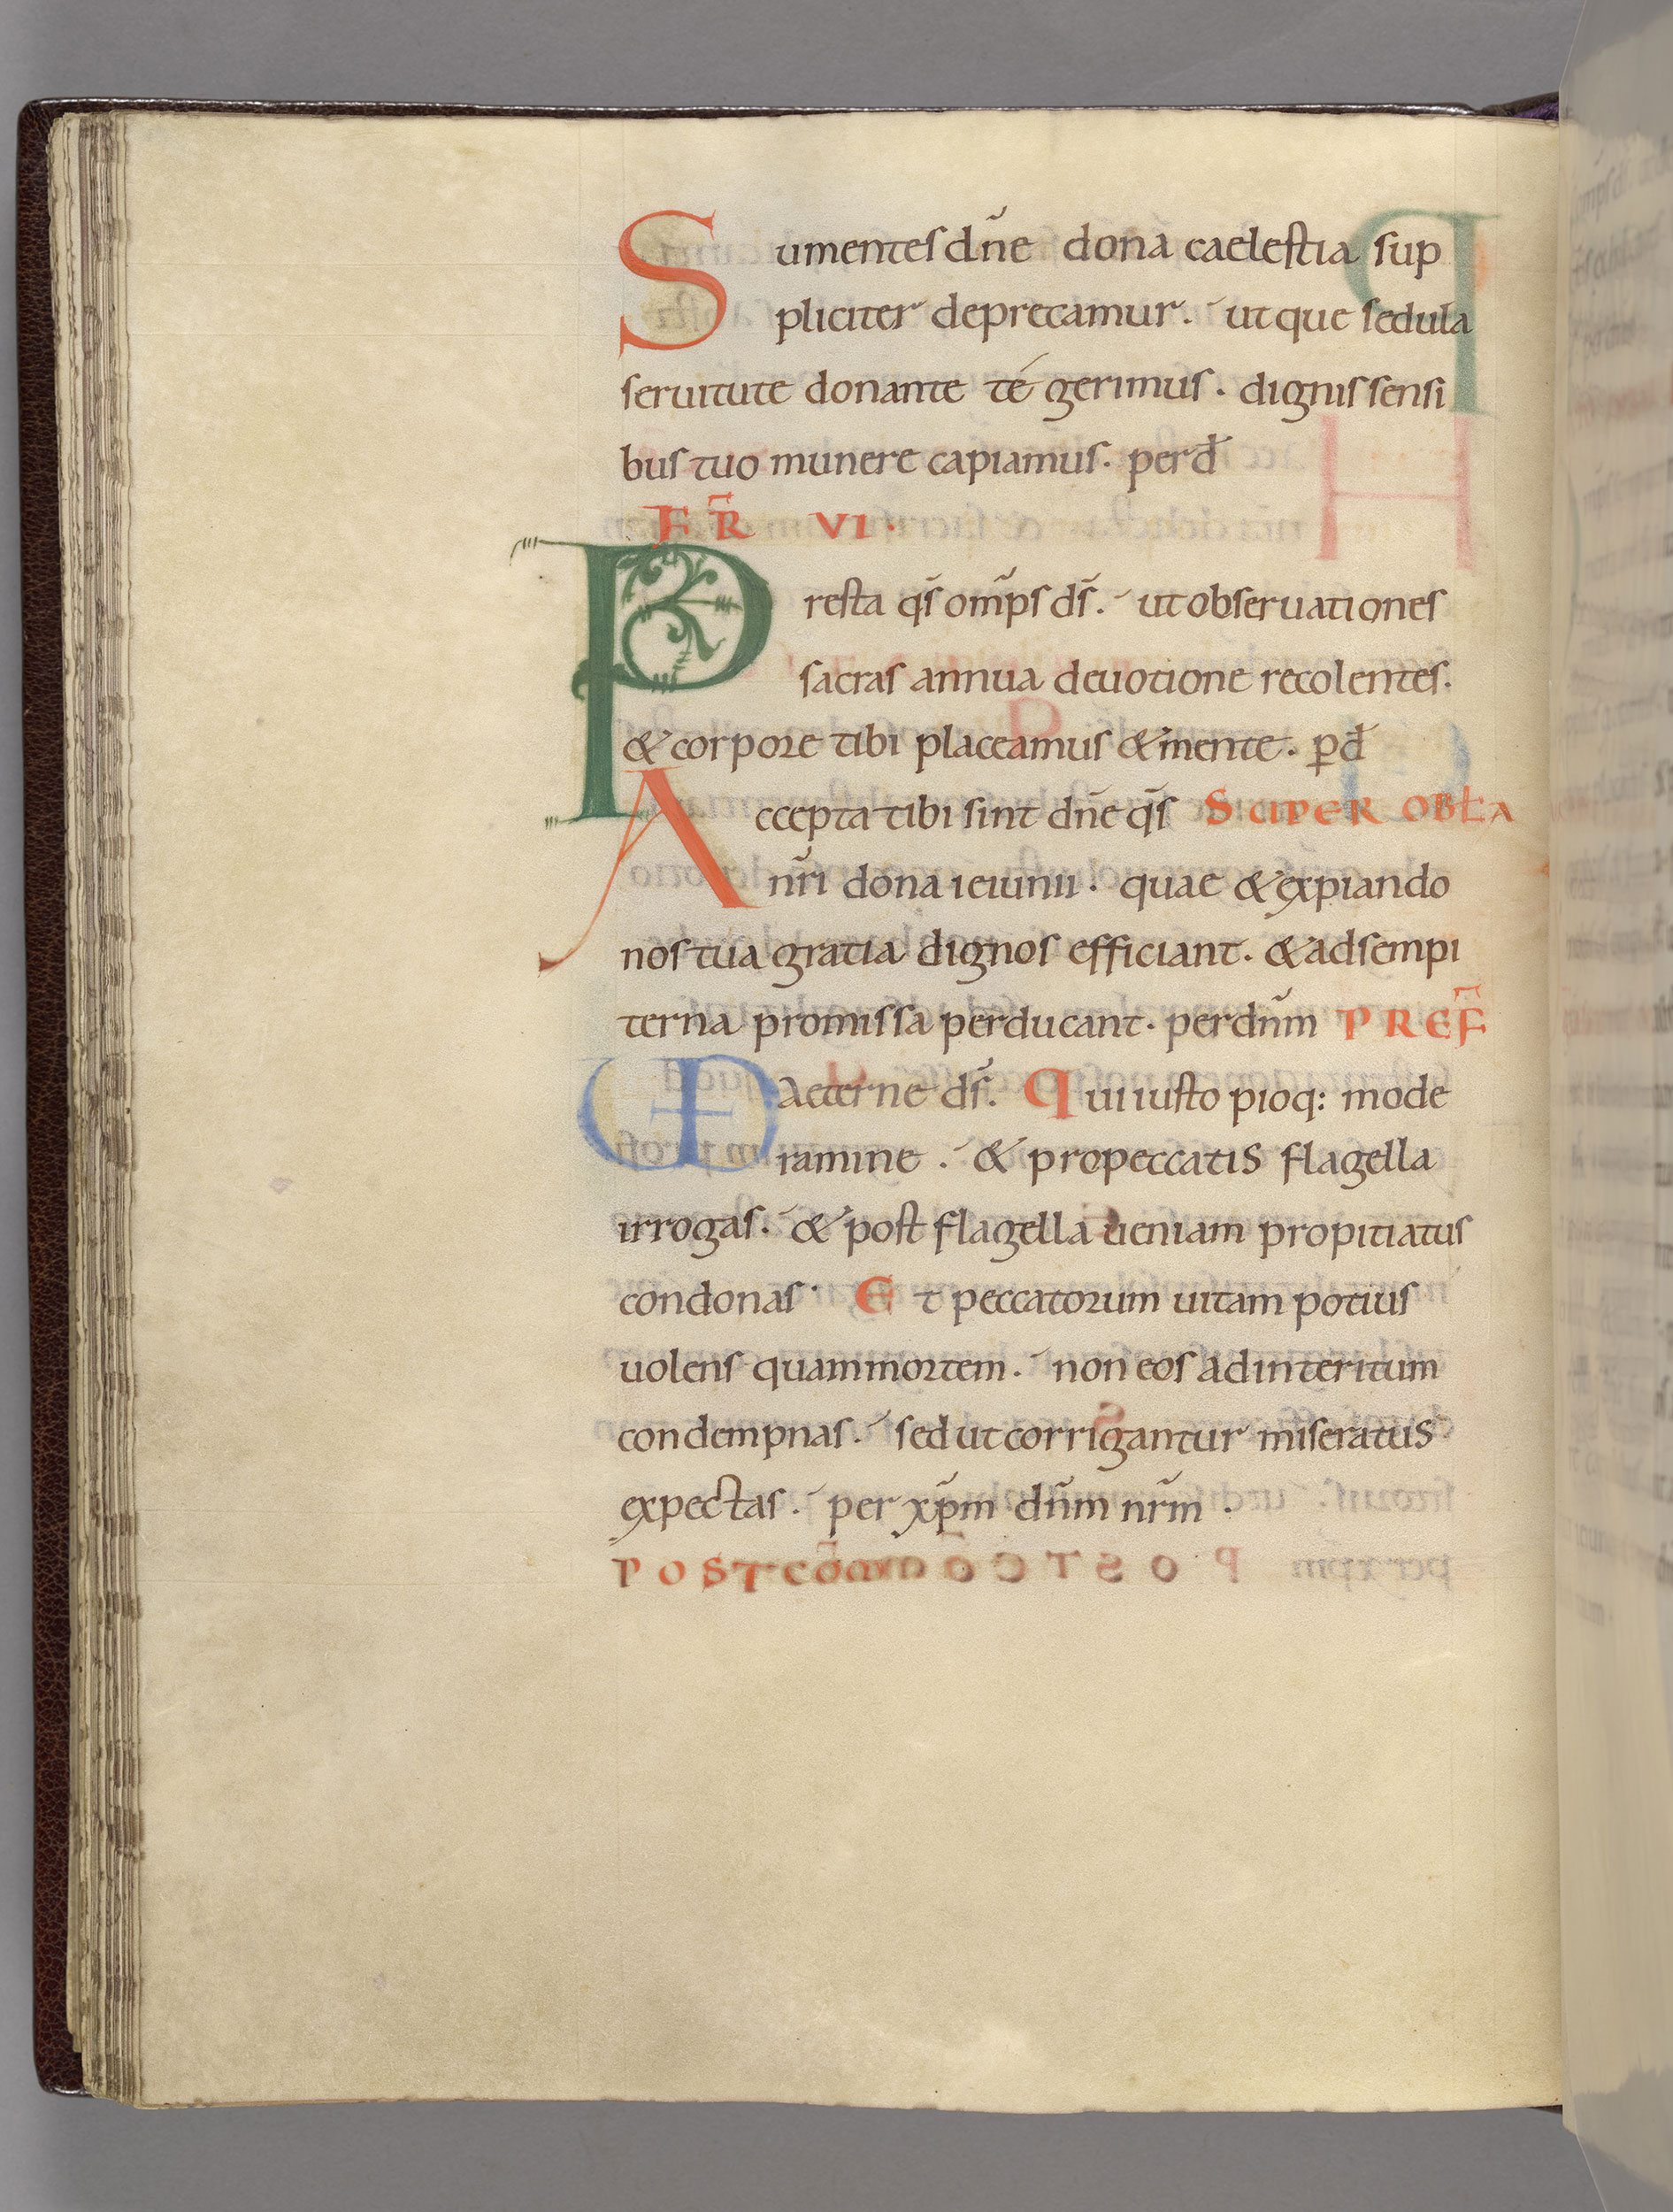 Sumentes dñe dona caelestia sup
pliciter deprecamur. ut que sedula
seruitute donante té gerimus. dignis sensi
bus tuo munere capiamus. per đ
FR̃ VI.
Presta qs̃ om̃ps ds̃. ut obseruationes
sacras annua deuotione recolentes.
& corpore tibi placeamus & mente. p̱ đ
Accepta tibi sint dñe qs̃ SUPER OBŁA
nr̃i dona ieiunii. quae & expiando
nos tua gratia dignos efficiant. & ad sempi
terna promissa perducant. per dñm PREF̃
VD Aeterne ds̃. Qui iusto pioq: mode
ramine. & pro peccatis flagella
irrogas. & post flagella ueniam propitiatus
condonas. Et peccatorum uitam potius
uolens quam mortem. non eos ad interitum
condempnas. sed ut corrigantur miseratus
expectas. per xp̃m dñm nr̃m.
POSTCOM̃